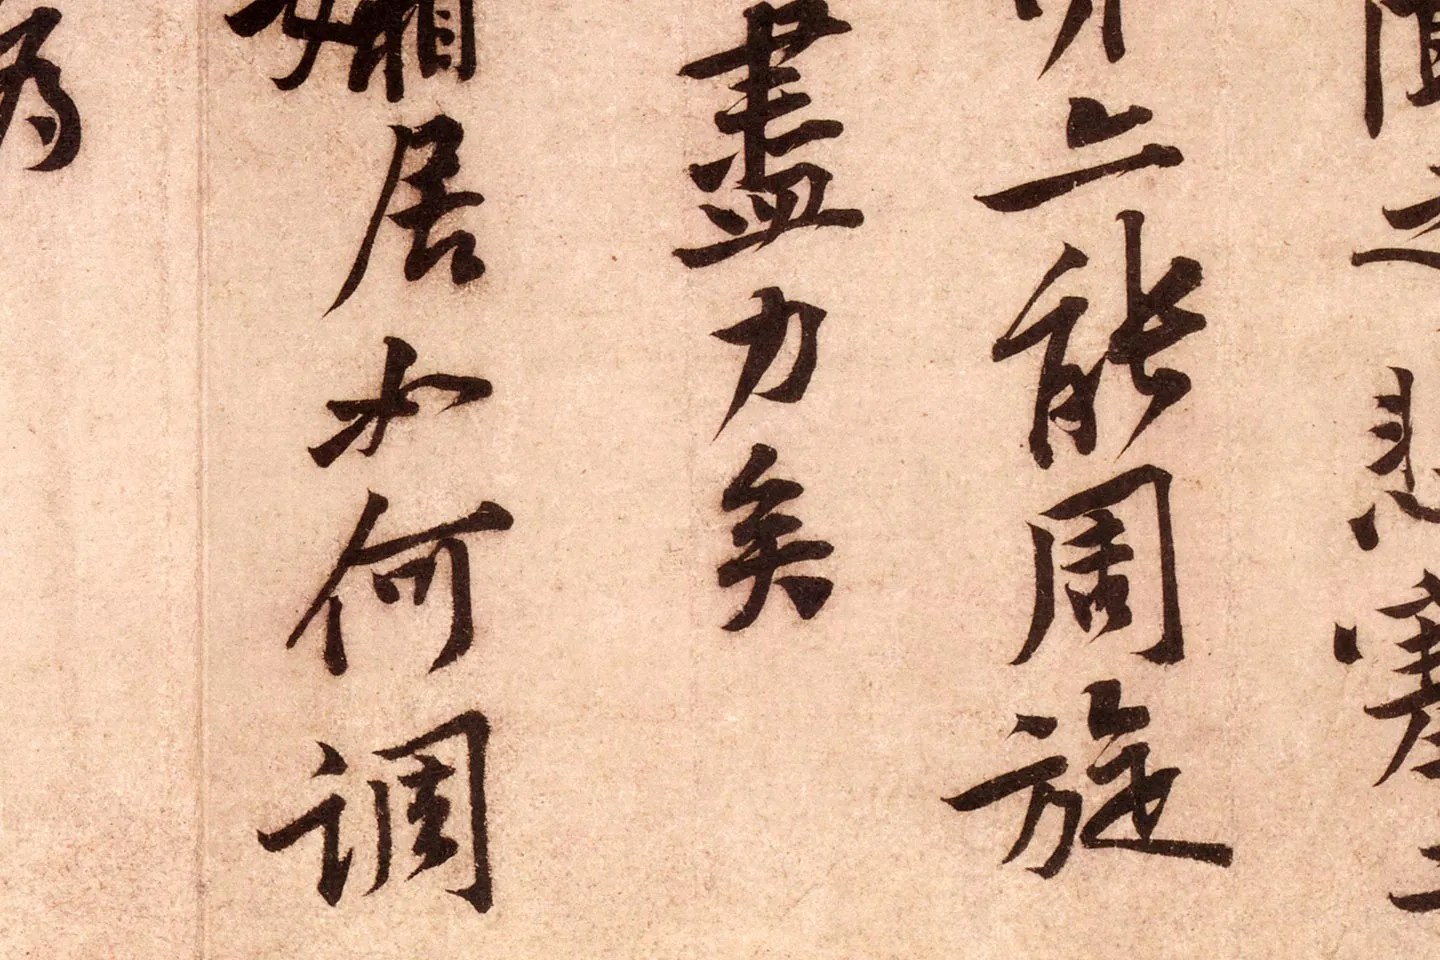 之悲塞
能周旋
盡力矣
孀居如何調
為